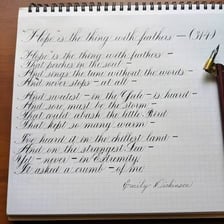 "Hope" is the thing with feathers – (314)
"Hope" is the thing with feathers –
That perches in the soul –
And sings the tune without the words –
And never stops – at all –
And sweetest – in the Gale – is heard –
And sore must be the storm –
That could abash the little Bird
That kept so many warm –
I've heard it in the chillest land –
And on the strangest Sea –
Yet – never – in Extremity,
It asked a crumb – of me.
Emily Dickinson